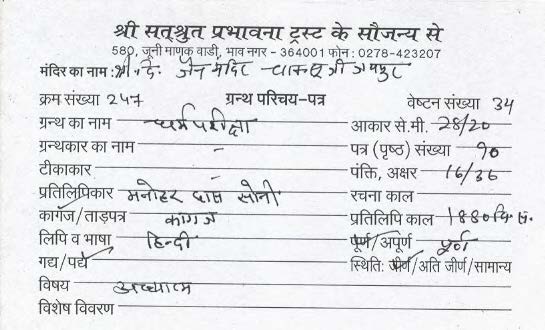 श्री सत्श्रुत प्रभावना ट्रस्ट के सौजन्य से
580, जूनी माणक वाडी, भाव नगर - 364001 फोन : 0278-423207
मंदिर का नाम : श्री दि. जैन मंदिर - चाकसू जी जयपुर
क्रम संख्या 247 ग्रन्थ परिचय-पत्र वेष्टन संख्या 34
ग्रन्थ का नाम धर्म परीक्षा आकार से.मी. 28/20
ग्रन्थकार का नाम - पत्र (पृष्ठ) संख्या 90
टीकाकार - पंक्ति, अक्षर 16/36
प्रतिलिपिकार मनोहर दास सोनी रचना काल
कागज/ताड़पत्र कागज प्रतिलिपि काल 1880 वि. सं.
लिपि व भाषा हिन्दी पूर्ण/अपूर्ण पूर्ण
गद्य/पद्य स्थिति: जीर्ण/अति जीर्ण/सामान्य
विषय अध्यात्म
विशेष विवरण